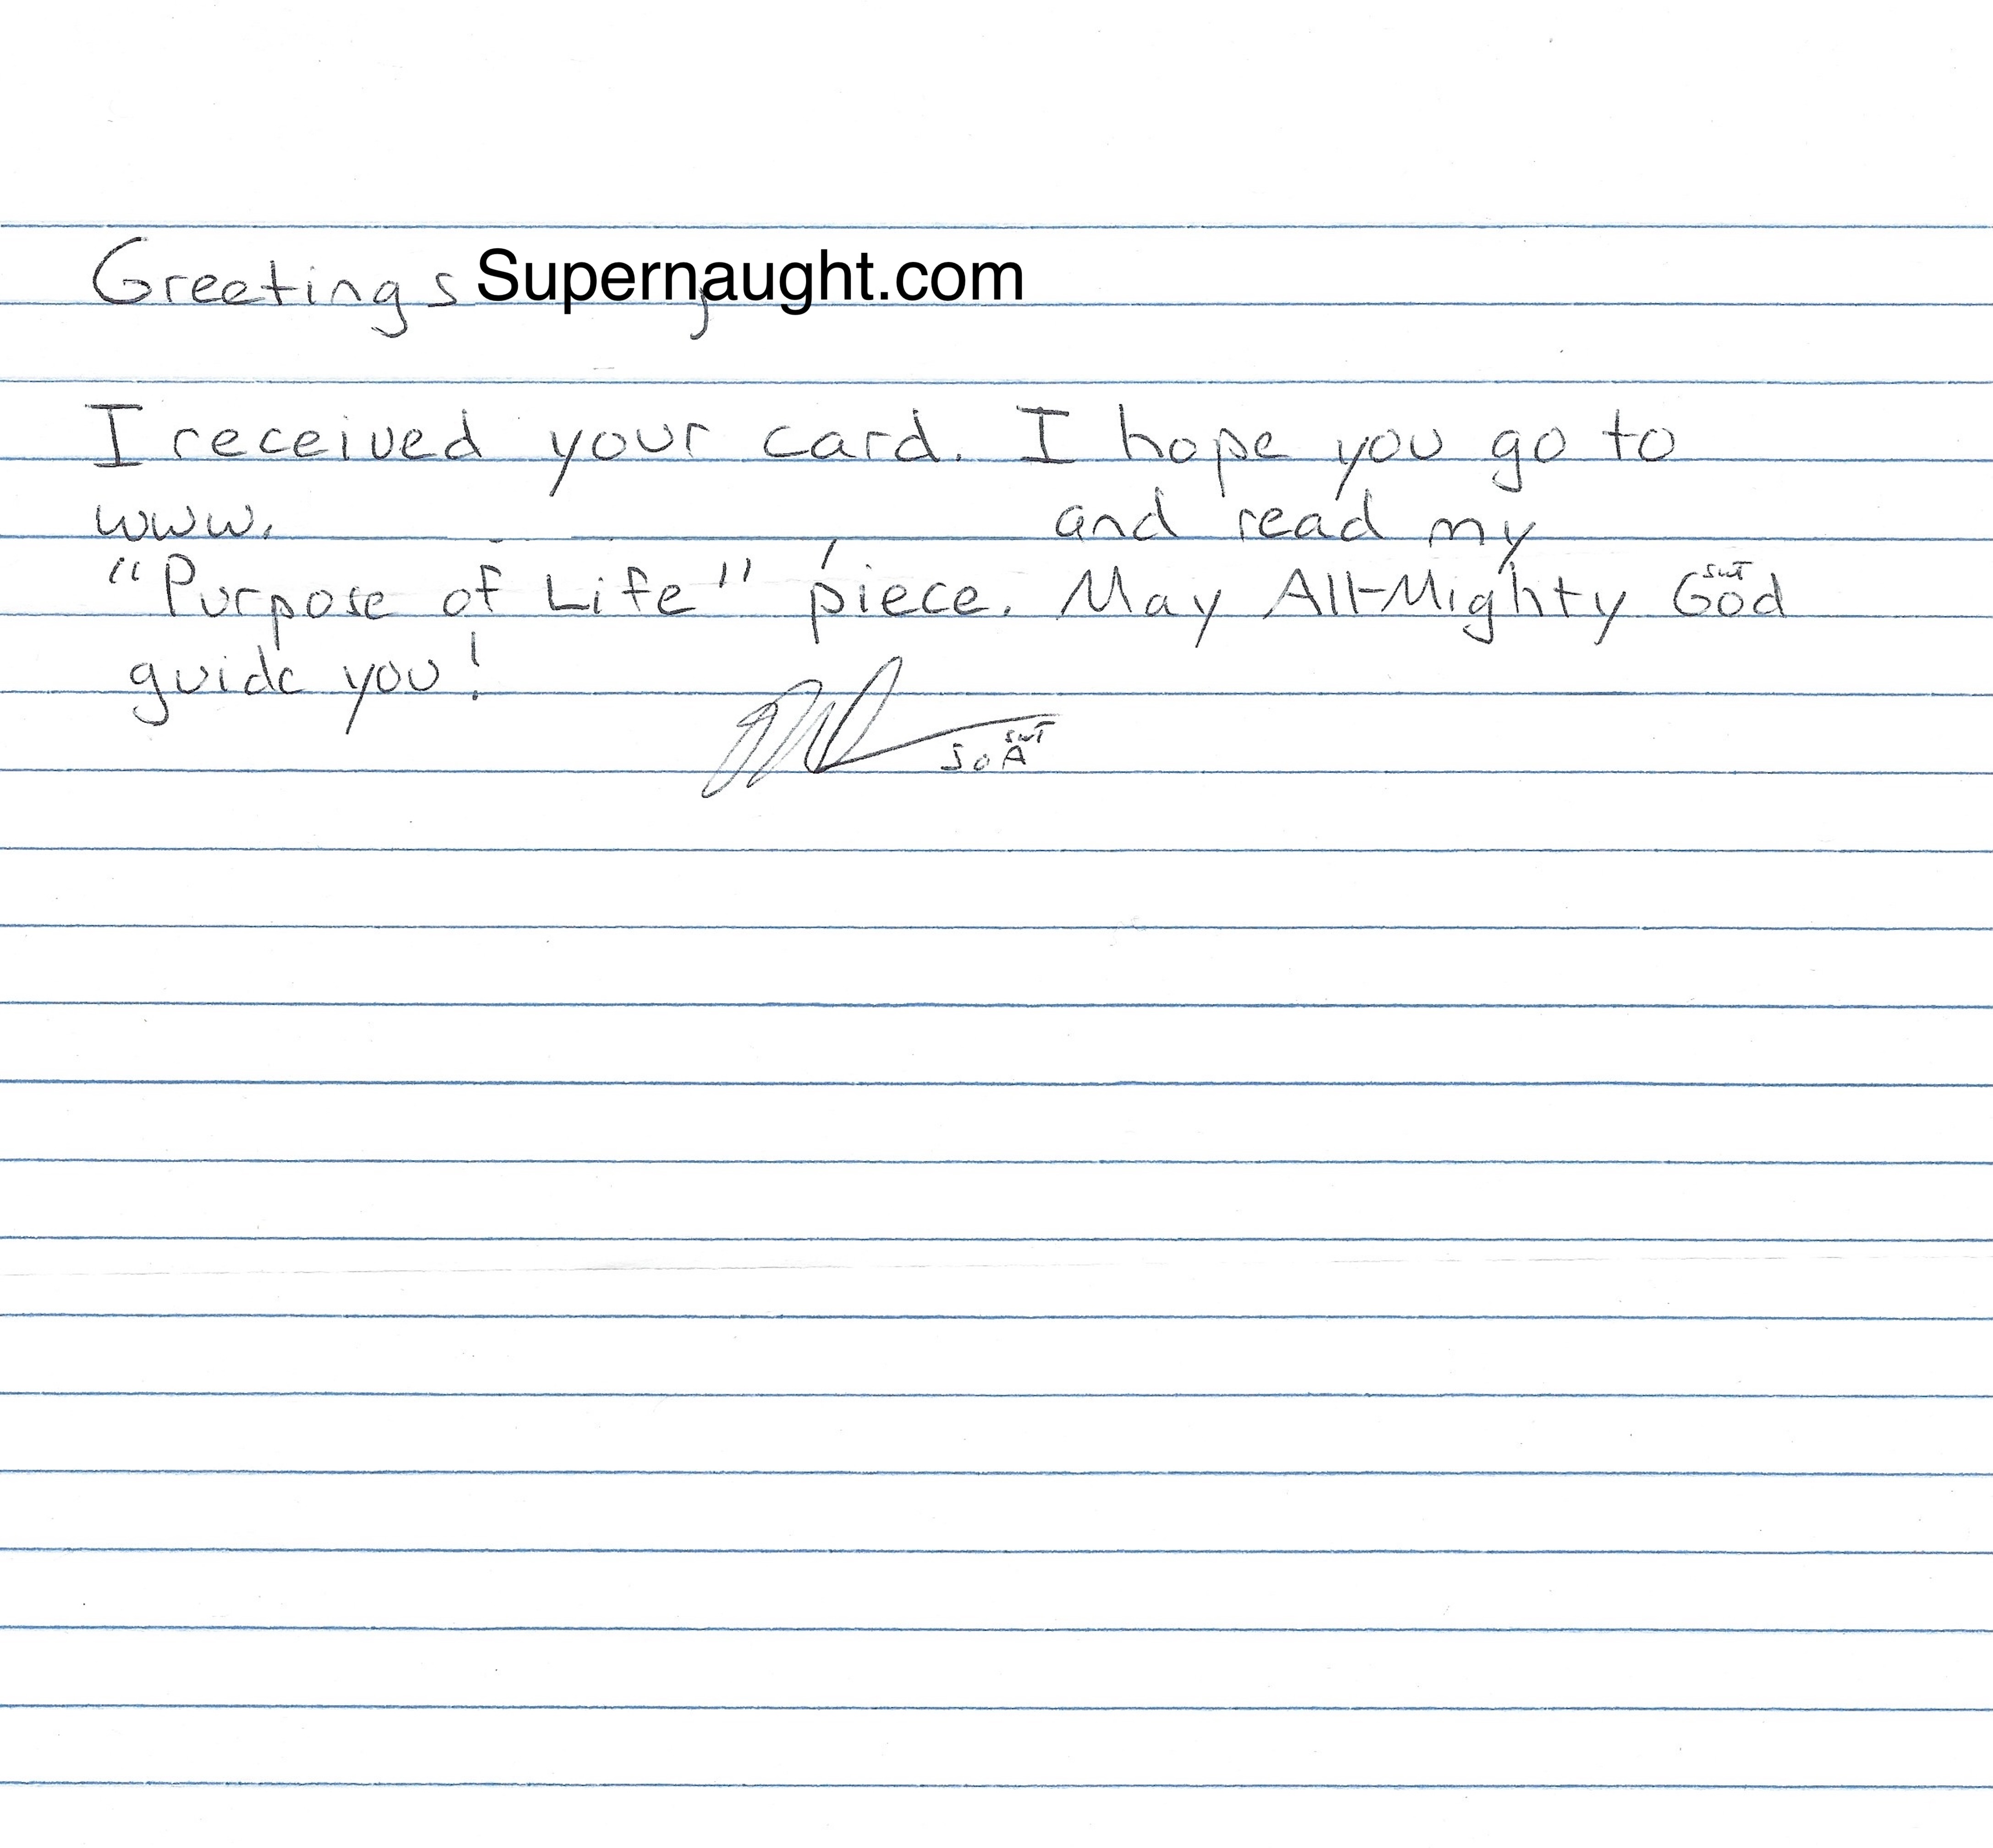 Greetings Supernaught.com,
I received your card. I hope you go to
www. and read my
"Purpose of Life" piece. May All-Mighty God swt
guide you!
SoA swt